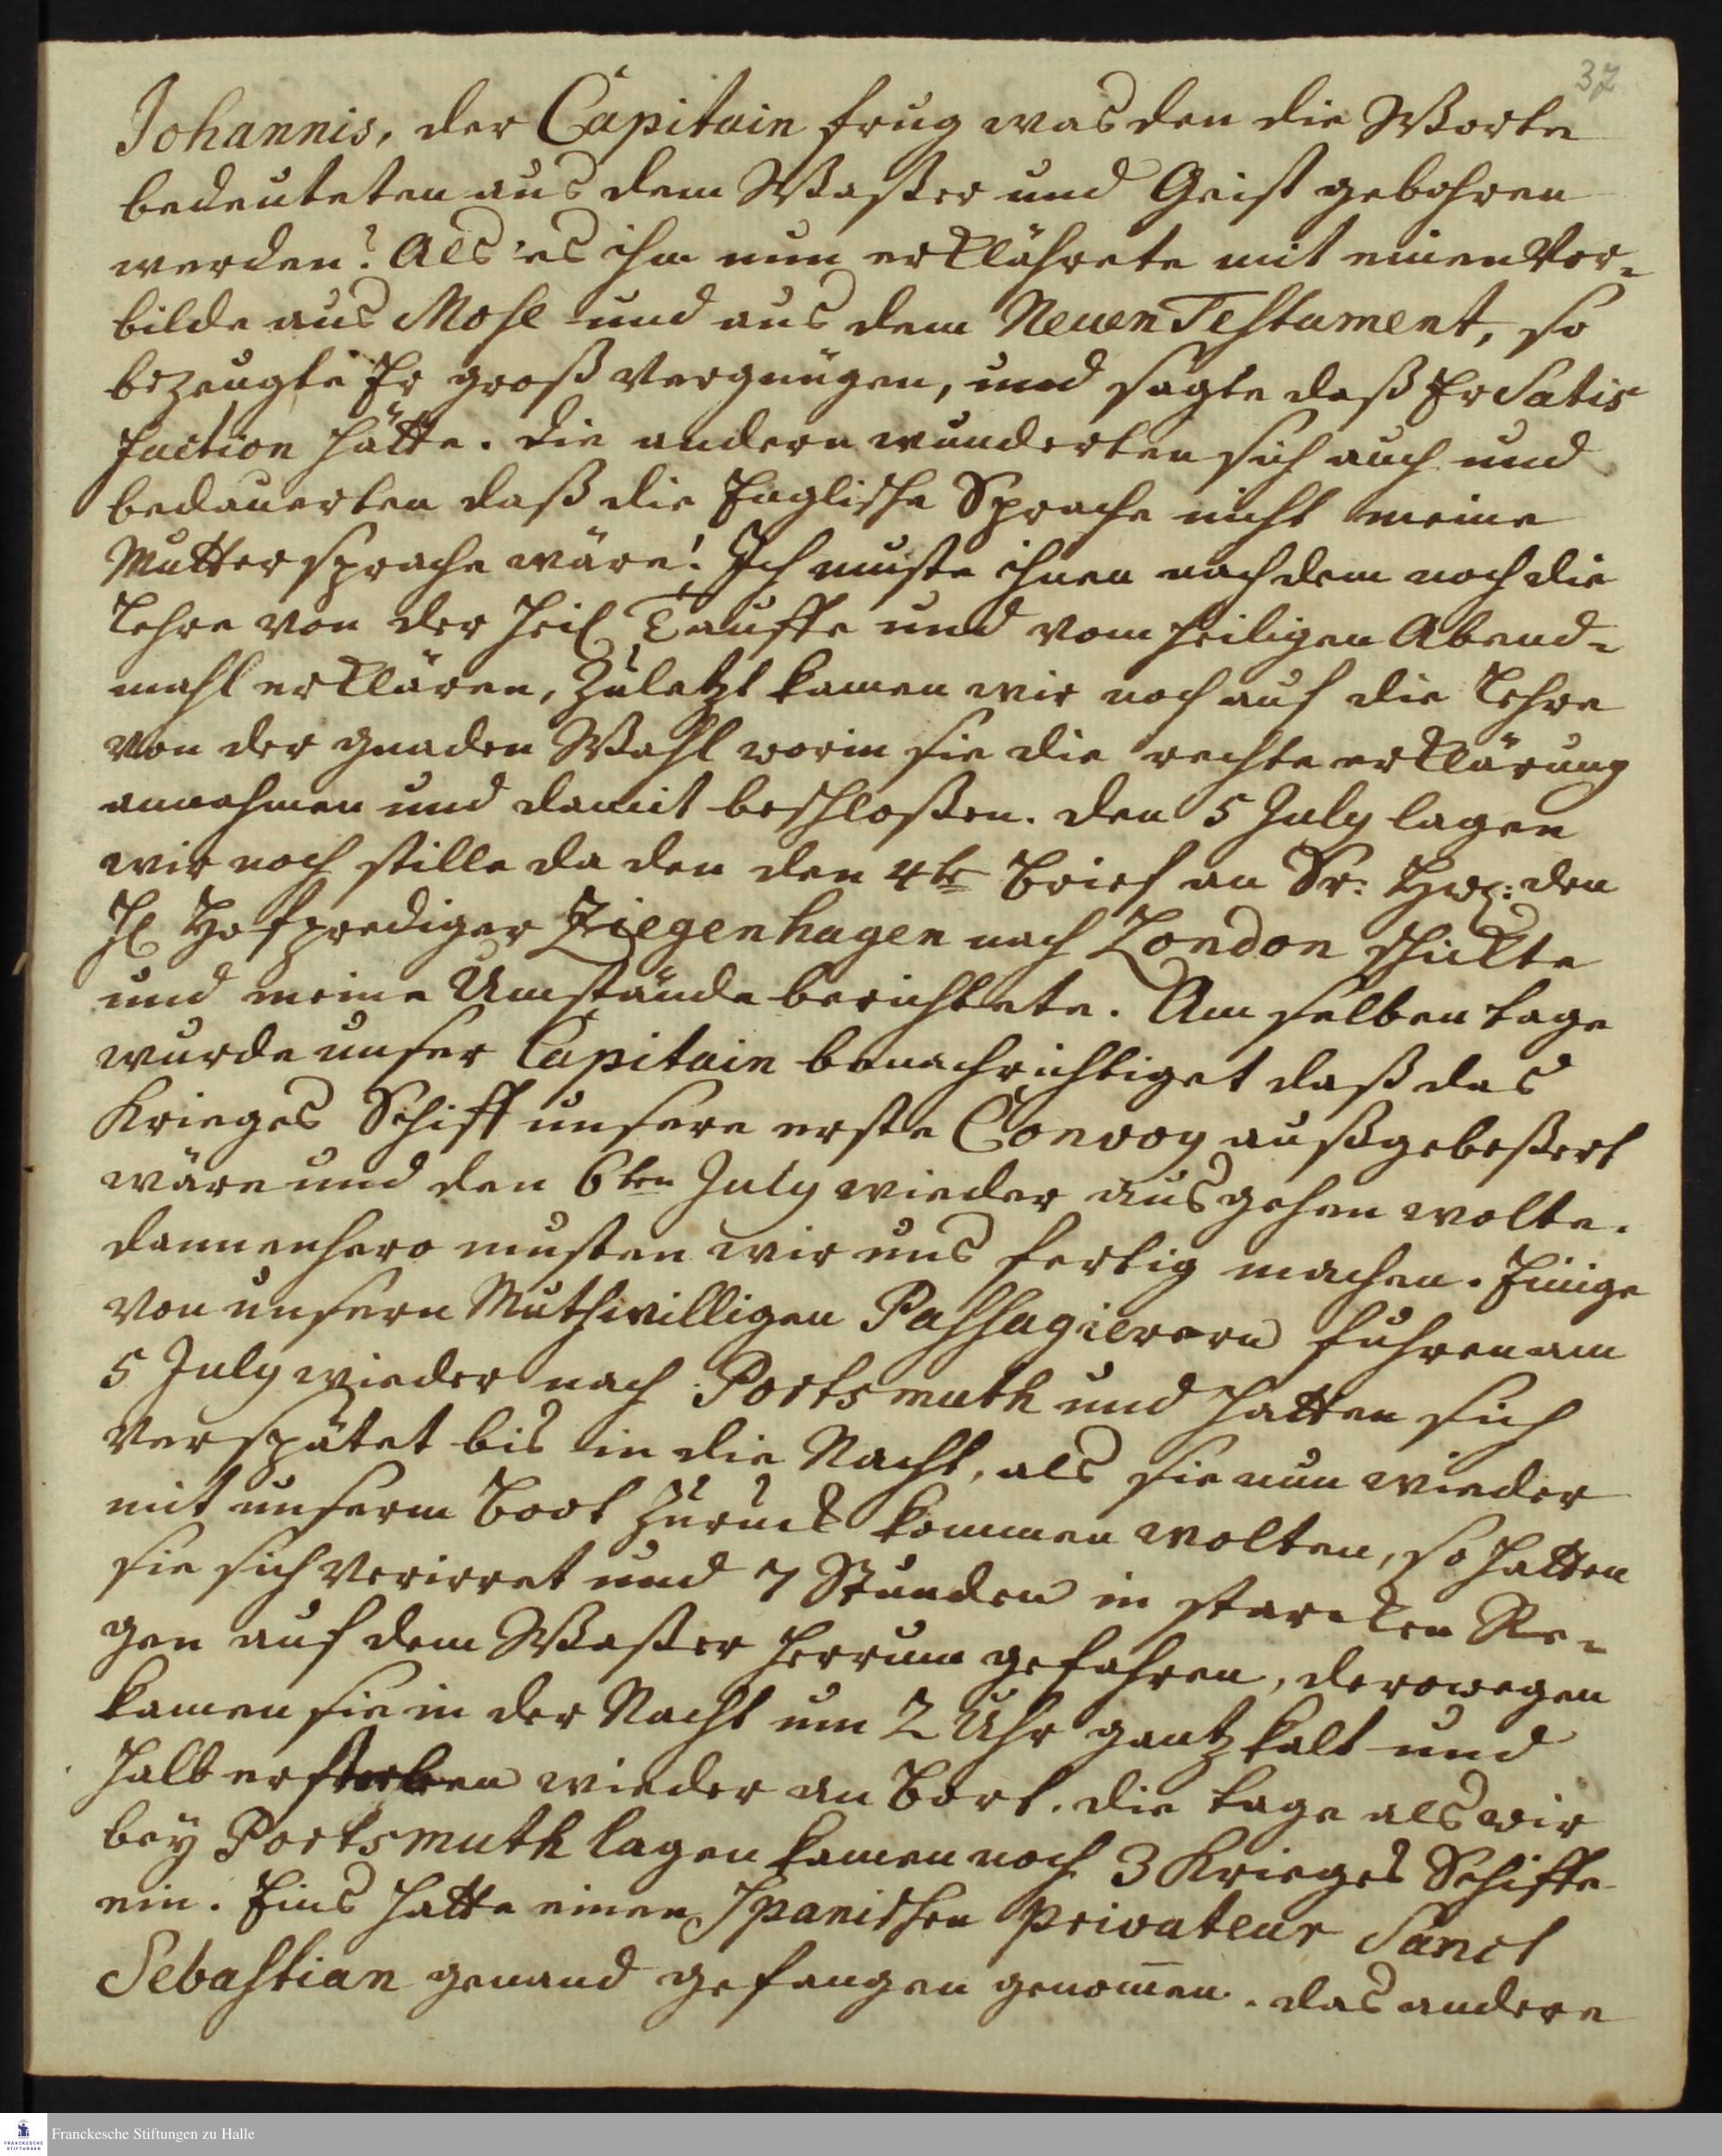 37
Johannis, der Capitain frug was den die Worte
bedeuteten aus dem Waßer und Geist gebohren
werden? Als es ihm nun erklährete mit einen Vor-
bilde aus Mose und aus dem Neuen Testament, so
bezeugte Er groß Vergnügen, und sagte daß Er Satis
faction hätte. die andern wunderten sich auch und
bedauerten daß die Englische Sprache nicht meine
Muttersprache wäre! Ich muste ihnen nach dem noch die
Lehre von der Heil Tauffe und vom heiligen Abend-
mahl erklären, Zuletzt kamen wir noch auf die Lehre
von der gnaden Wahl worin sie die rechte erklärung
annahmen und damit beschloßen. den 5 July lagen
wir noch stille da den den 4te Brief an Sr: Hw: den
H Hofprediger Ziegenhagen nach London schickte
und meine Umstände berichtete. Am selben tage
wurde unser Capitain benachrichtiget daß das
Krieges Schiff unsere erste Convoy außgebeßert
wäre und den 6ten July wieder ausgehen wolte.
dannenhero musten wir uns fertig machen. Einige
von unsern Muthwilligen Passagierern fuhren am
5 July wieder nach Portsmuth und hatten sich
verspätet bis in die Nacht, als sie nun wieder
mit unserm Boot zurück kommen wolten, so hatten
sie sich verirret und 7 Stunden in starcken Re-
gen auf dem Waßer herrum gefahren, derowegen
kamen sie in der Nacht um 2 Uhr gantz kalt und
halb erstorben wieder an Bort. die tage als wir
bey Portsmuth lagen kamen noch 3 Krieges Schiffe
ein. Eins hatte einen Spanischen Privateur Sanct
Sebastian genand gefangen genom̅en. das andere
Franckesche Stiftungen zu Halle